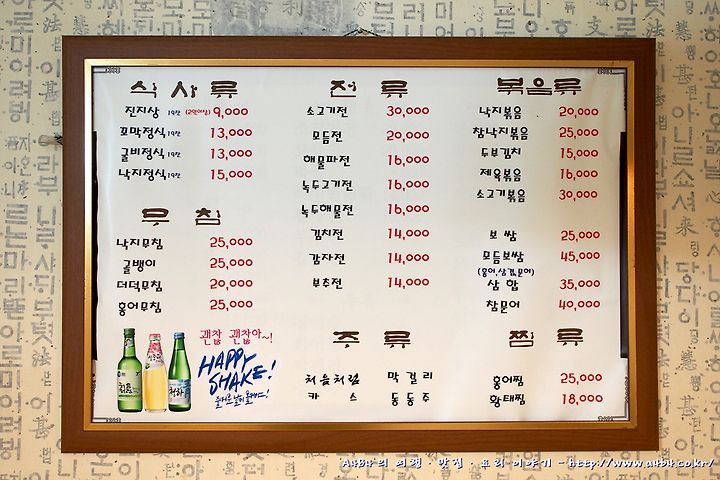 식 사 류
진지상 1인 (2인이상) 9,000
꼬막정식 1인 13,000
굴비정식 1인 13,000
낙지정식 1인 15,000
무 침
낙지무침 25,000
골뱅이 25,000
더덕무침 20,000
홍어무침 25,000
괜찮 괜찮아~!
HAPPY
SHAKE!
전 류
소고기전 30,000
모듬전 20,000
해물파전 16,000
녹두고기전 16,000
녹두해물전 16,000
김치전 14,000
감자전 14,000
부추전 14,000
주 류
처음처럼 막걸리
카 스 동동주
볶음류
낙지볶음 20,000
참낙지볶음 25,000
두부김치 15,000
제육볶음 16,000
소고기볶음 30,000
보 쌈 25,000
모듬보쌈 45,000
(홍어,삼겹,문어)
삼 합 35,000
참문어 40,000
찜 류
홍어찜 25,000
황태찜 18,000
A4B4의 여행 · 맛집 · 요리 이야기 - http://www.a4b4.co.kr/